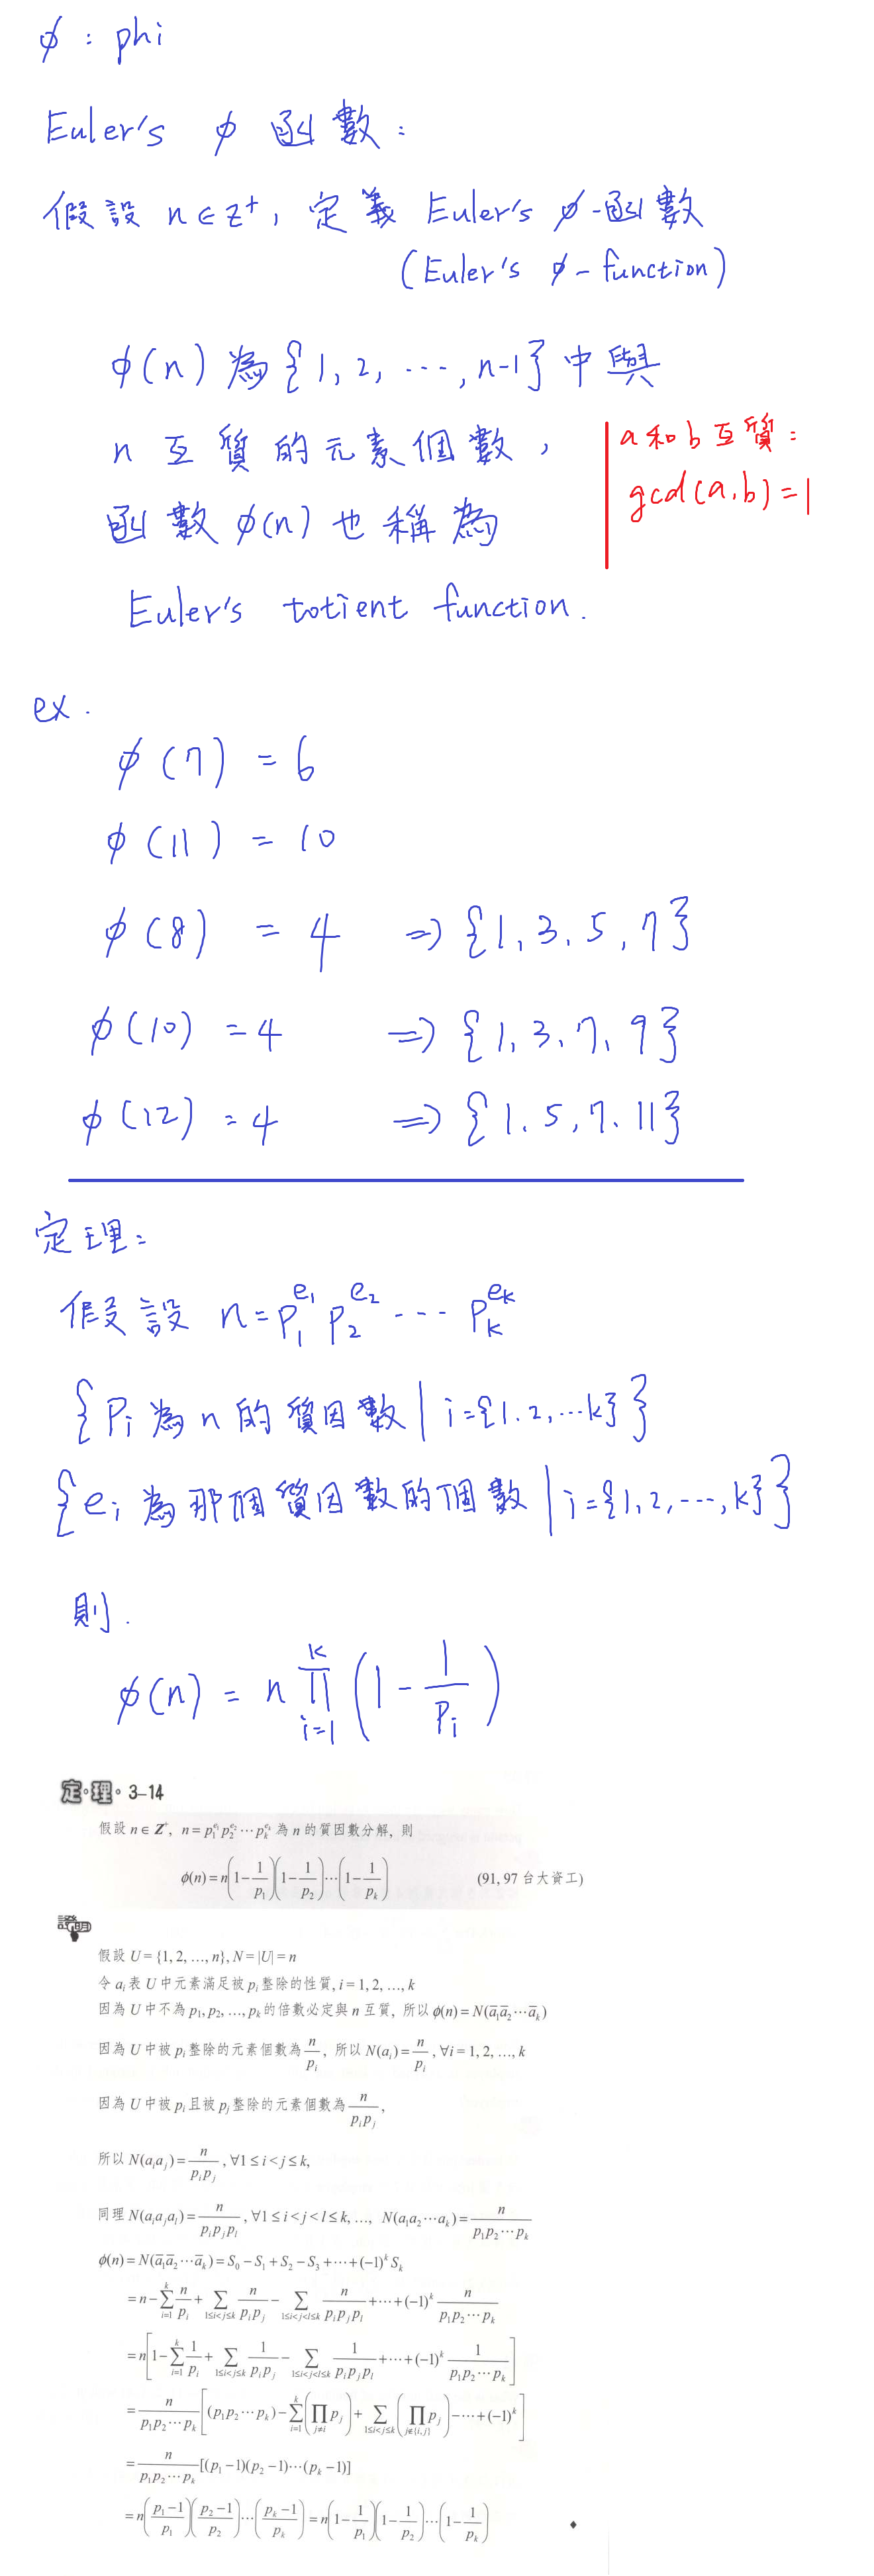 ϕ : phi
Euler's ϕ 函數:
假設 n∈Z⁺, 定義 Euler's ϕ-函數
(Euler's ϕ-function)
ϕ(n) 為 {1, 2, ⋯, n-1} 中與
n 互質的元素個數,
a 和 b 互質:
gcd(a,b)=1
函數 ϕ(n) 也稱為
Euler's totient function.
ex.
ϕ(7) = 6
ϕ(11) = 10
ϕ(8) = 4 ⇒ {1, 3, 5, 7}
ϕ(10) = 4 ⇒ {1, 3, 7, 9}
ϕ(12) = 4 ⇒ {1, 5, 7, 11}
定理:
假設 n = p₁^e₁ p₂^e₂ ⋯ pₖ^eₖ
{Pᵢ 為 n 的質因數 | i={1,2,⋯k}}
{eᵢ 為那個質因數的個數 | i={1,2,⋯,k}}
則.
ϕ(n) = n ∏_{i=1}^{k} (1 - 1/Pᵢ)
定•理•3–14
假設 n∈Z⁺, n=p₁^e₁p₂^e₂⋯pₖ^eₖ 為 n 的質因數分解, 則
ϕ(n)=n(1-1/p₁)(1-1/p₂)⋯(1-1/pₖ) (91, 97 台大資工)
證明
假設 U={1, 2, …, n}, N=|U|=n
令 aᵢ 表 U 中元素滿足被 pᵢ 整除的性質, i=1, 2, …, k
因為 U 中不為 p₁, p₂, …, pₖ 的倍數必定與 n 互質, 所以 ϕ(n)=N(a̅₁a̅₂⋯a̅ₖ)
因為 U 中被 pᵢ 整除的元素個數為 n/pᵢ, 所以 N(aᵢ)=n/pᵢ, ∀i=1, 2, …, k
因為 U 中被 pᵢ 且被 pⱼ 整除的元素個數為 n/(pᵢpⱼ),
所以 N(aᵢaⱼ)=n/(pᵢpⱼ), ∀1≤i<j≤k,
同理 N(aᵢaⱼaₗ)=n/(pᵢpⱼpₗ), ∀1≤i<j<l≤k, …, N(a₁a₂⋯aₖ)=n/(p₁p₂⋯pₖ)
ϕ(n)=N(a̅₁a̅₂⋯a̅ₖ)=S₀-S₁+S₂-S₃+⋯+(-1)^k Sₖ
=n-∑_{i=1}^{k} n/pᵢ+∑_{1≤i<j≤k} n/(pᵢpⱼ)-∑_{1≤i<j<l≤k} n/(pᵢpⱼpₗ)+⋯+(-1)^k n/(p₁p₂⋯pₖ)
=n[1-∑_{i=1}^{k} 1/pᵢ+∑_{1≤i<j≤k} 1/(pᵢpⱼ)-∑_{1≤i<j<l≤k} 1/(pᵢpⱼpₗ)+⋯+(-1)^k 1/(p₁p₂⋯pₖ)]
=n/(p₁p₂⋯pₖ)[(p₁p₂⋯pₖ)-∑_{i=1}^{k}(∏_{j≠i} pⱼ)+∑_{1≤i<j≤k}(∏_{j∉{i,j}} pⱼ)-⋯+(-1)^k]
=n/(p₁p₂⋯pₖ)[(p₁-1)(p₂-1)⋯(pₖ-1)]
=n((p₁-1)/p₁)((p₂-1)/p₂)⋯((pₖ-1)/pₖ)=n(1-1/p₁)(1-1/p₂)⋯(1-1/pₖ) ◆